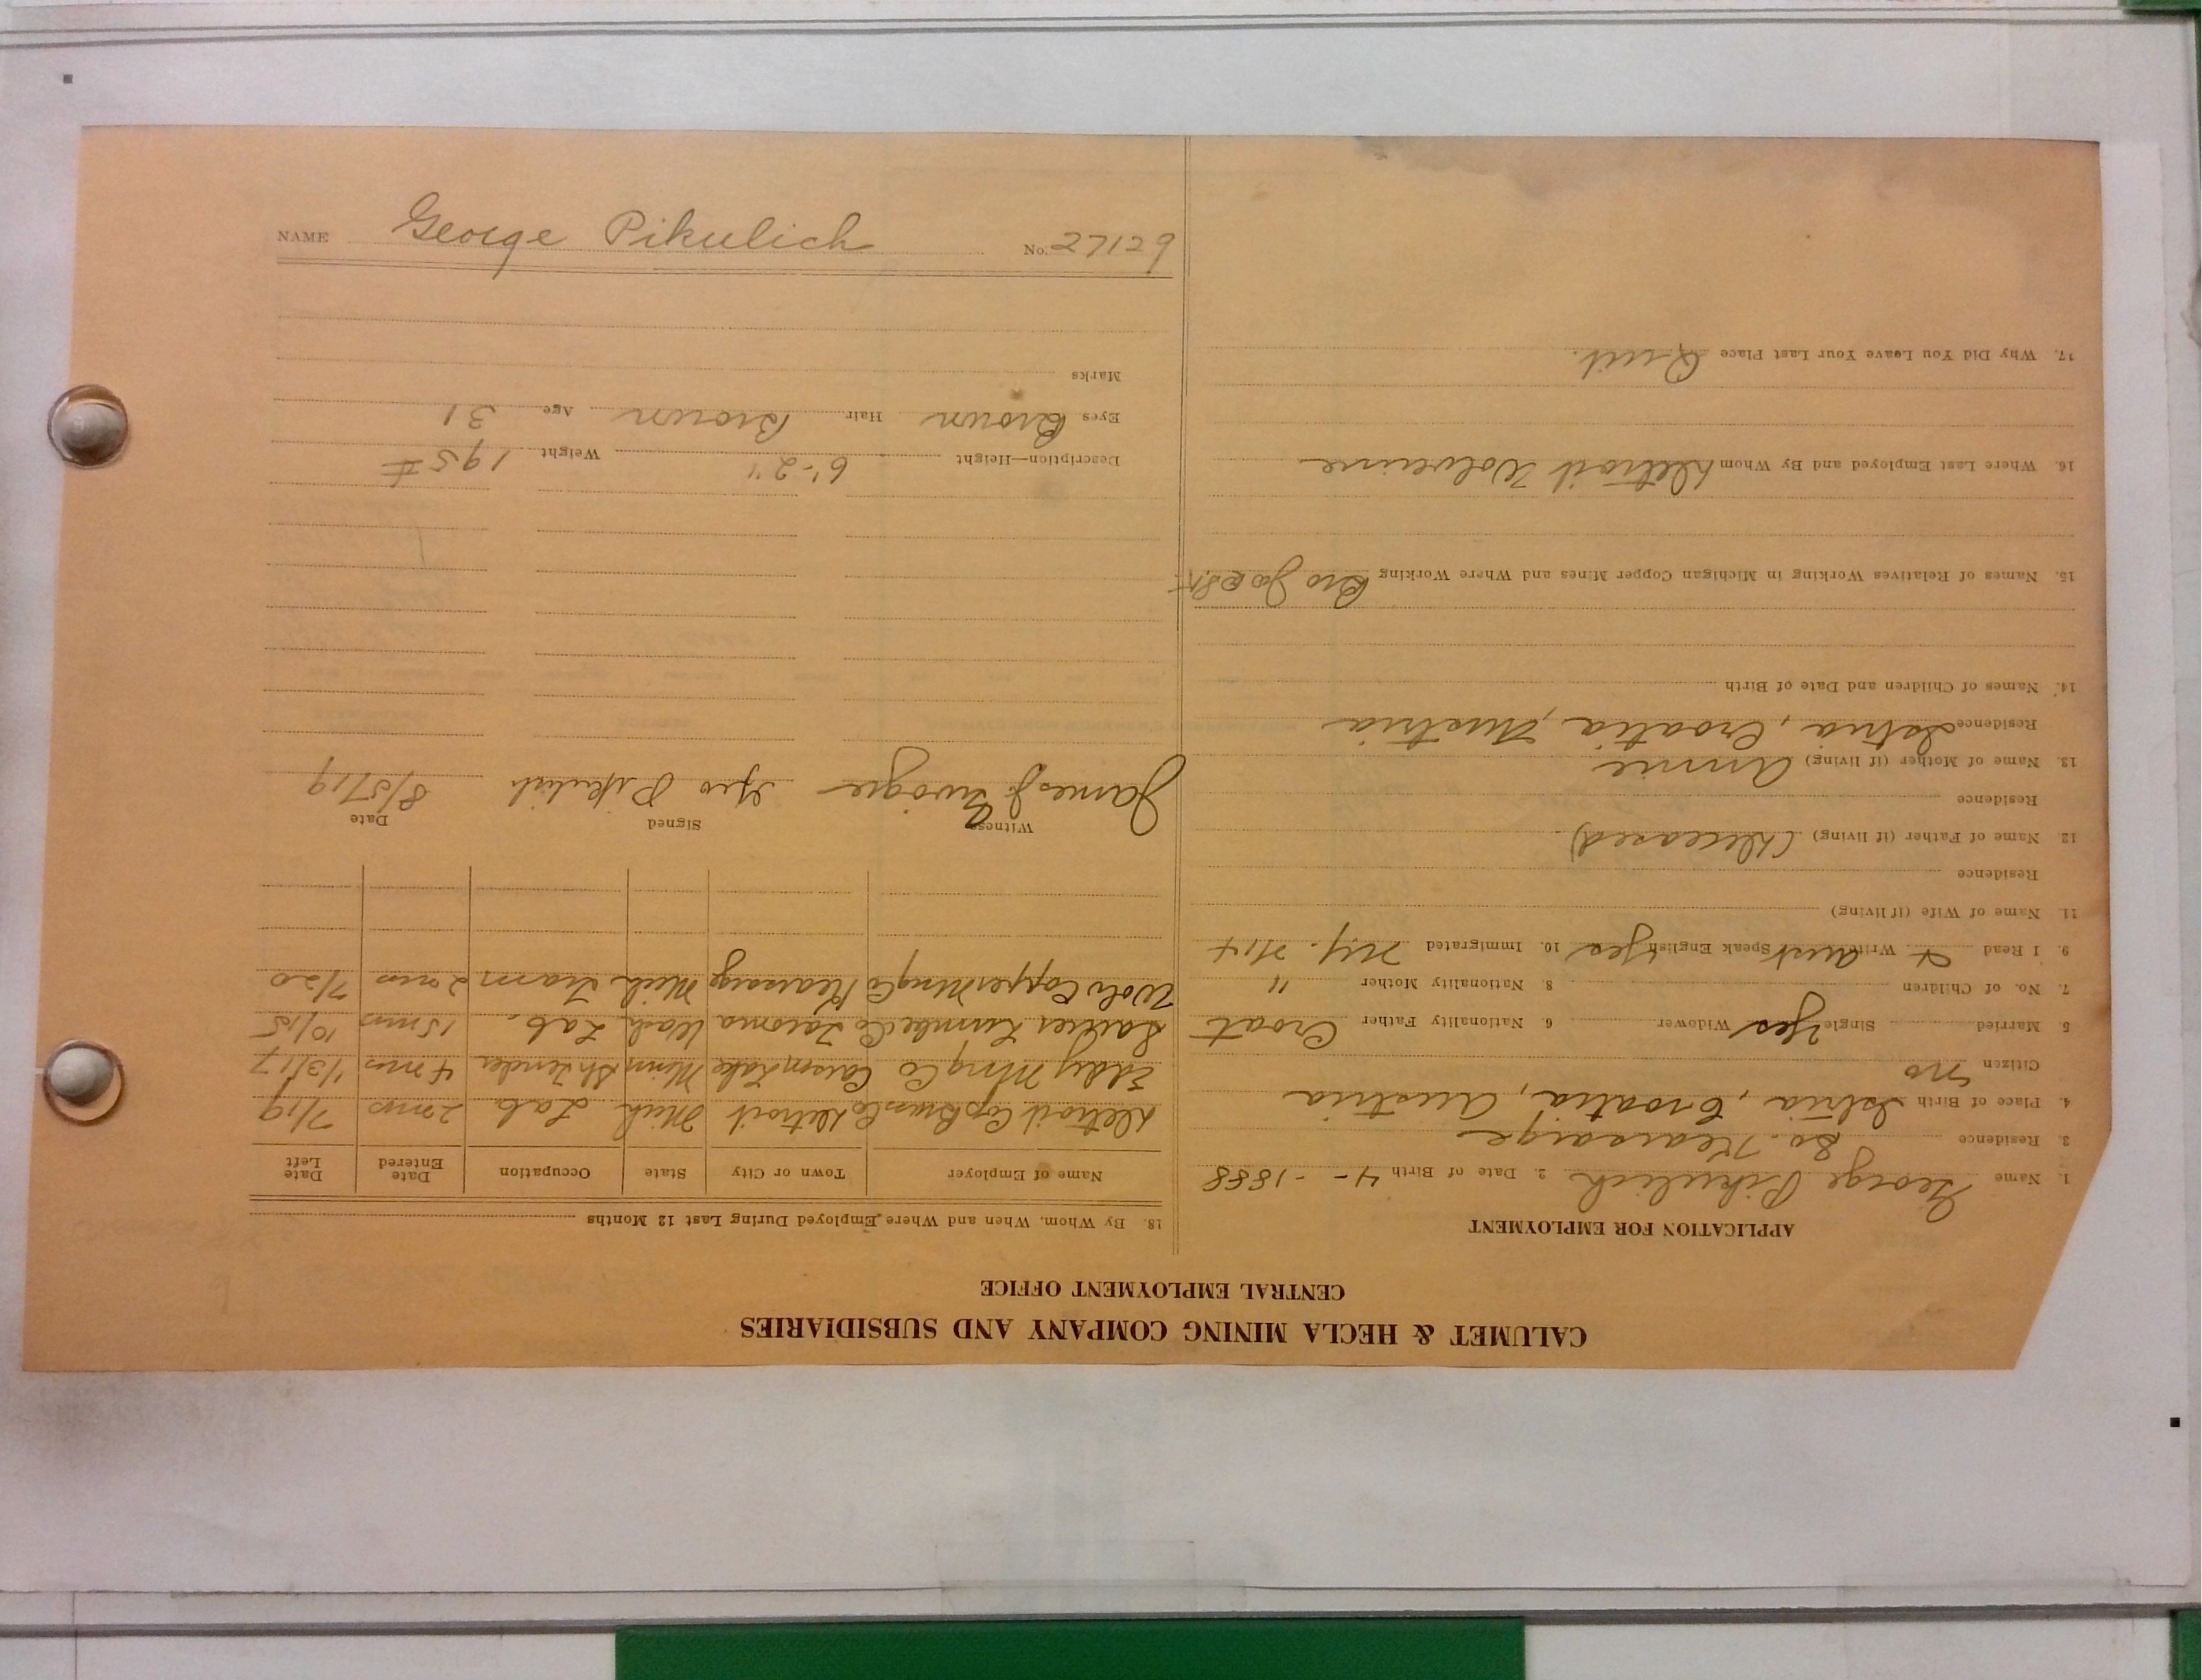 CALUMET & HECLA MINING COMPANY AND SUBSIDIARIES
CENTRAL EMPLOYMENT OFFICE
APPLICATION FOR EMPLOYMENT
1. Name George Pikulich 2. Date of Birth 4 - - 1888
3. Residence So. Kearsarge
4. Place of Birth Istria, Croatia, Austria
Citizen no
5. Married Single Yes Widower 6. Nationality Father Croat
7. No. of Children 8. Nationality Mother "
9. I Read & Write Aust Speak English Yes 10. Immigrated N.Y.
11. Name of Wife (if living)
Residence
12. Name of Father (if living) (Deceased)
Residence
13. Name of Mother (if living) Annie
Residence Istria, Croatia, Austria
14. Names of Children and Date of Birth
15. Names of Relatives Working in Michigan Copper Mines and Where Working Bro Joe
16. Where Last Employed and By Whom Detroit Wolverine
17. Why Did You Leave Your Last Place Quit.
18. By Whom, When and Where Employed During Last 12 Months
Name of Employer Town or City State Occupation Date Entered Date Left
Detroit Cop Brass Co Detroit Mich Lab. 2 mos 7/19
Eddy Mng Co Carson Lake Minn Tender 4 mos 1/3/17
Lumber Co Tacoma Wash Lab. 15 mos 10/15
Wolv Copper Mng Co Kearsarge Mich Tram 2 mos 7/20
Witness Signed Date
James J. Geo Pikulich 8/5/19
Description—Height 6'-2" Weight 195 #
Eyes Brown Hair Brown Age 31
Marks
NAME George Pikulich No. 27129